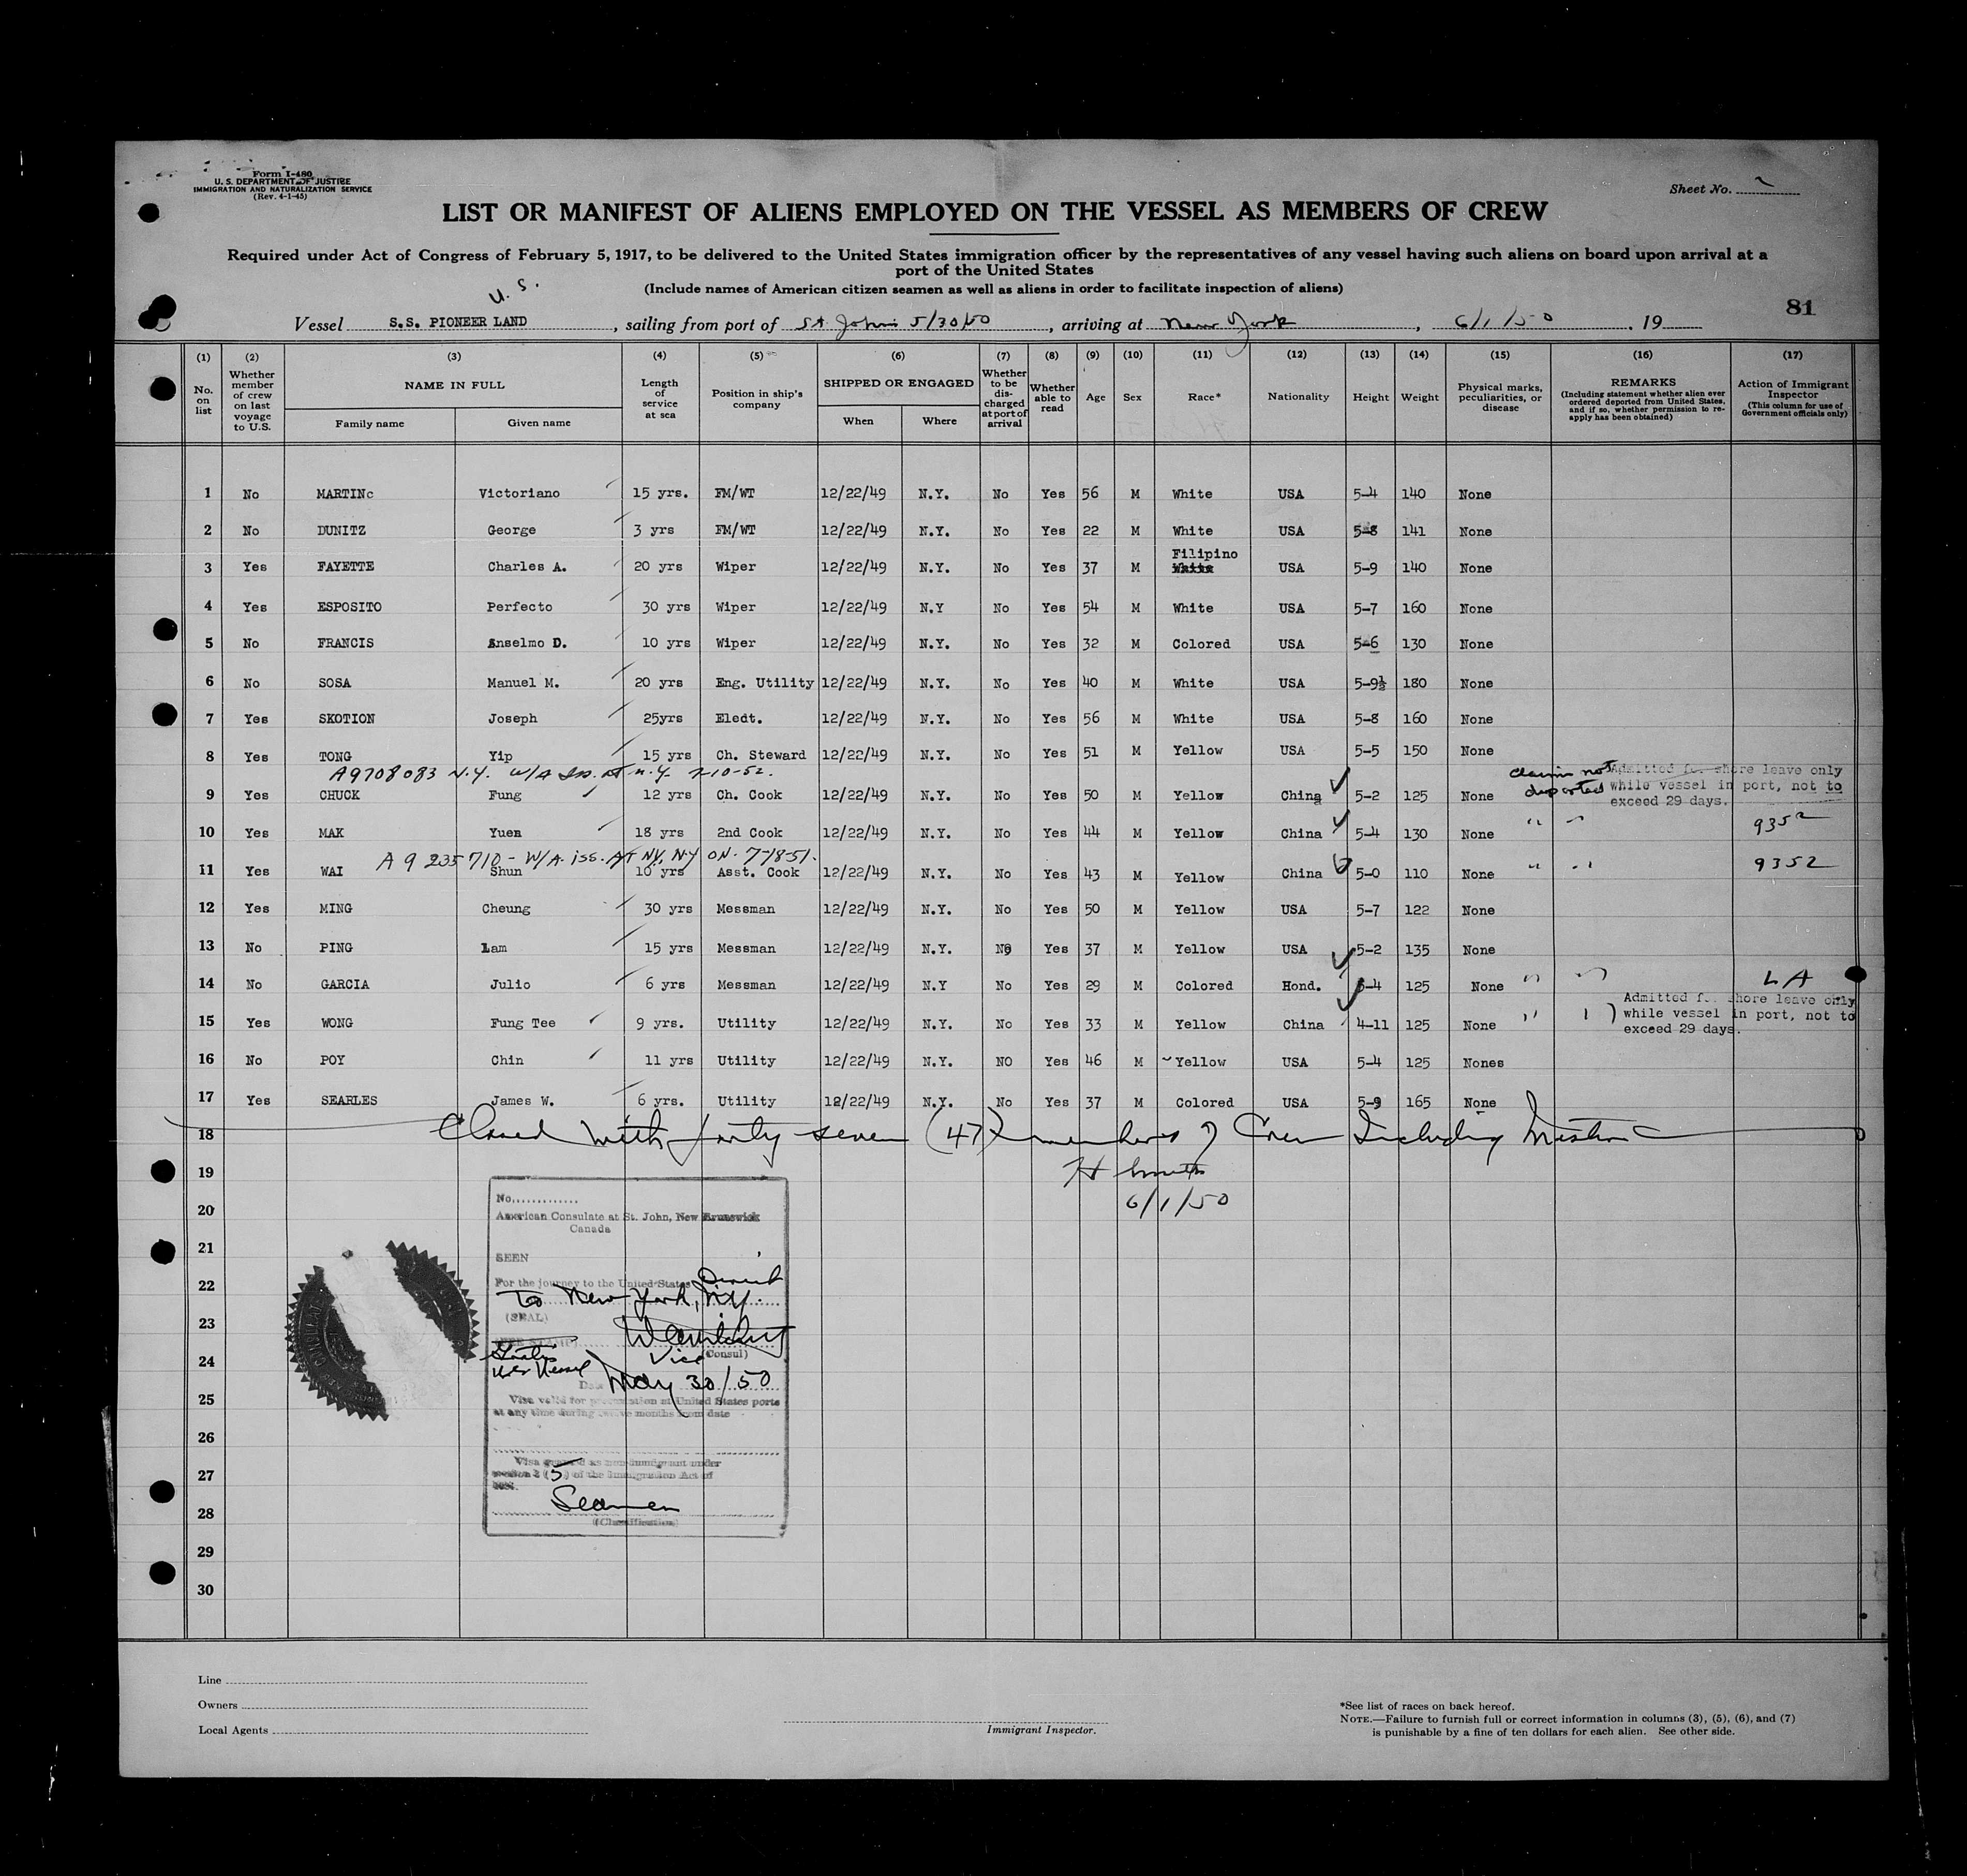 Form I-480
U. S. DEPARTMENT OF JUSTICE
IMMIGRATION AND NATURALIZATION SERVICE
(Rev. 4-1-45)
Sheet No. 2
LIST OR MANIFEST OF ALIENS EMPLOYED ON THE VESSEL AS MEMBERS OF CREW
Required under Act of Congress of February 5, 1917, to be delivered to the United States immigration officer by the representatives of any vessel having such aliens on board upon arrival at a
port of the United States
(Include names of American citizen seamen as well as aliens in order to facilitate inspection of aliens)
U. S.
81
Vessel S.S. PIONEER LAND, sailing from port of St. John 5/30/50, arriving at New York, 6/1/50, 19
(1) (2) (3) (4) (5) (6) (7) (8) (9) (10) (11) (12) (13) (14) (15) (16) (17)
No. on list
Whether member of crew on last voyage to U.S.
NAME IN FULL
Family name
Given name
Length of service at sea
Position in ship's company
SHIPPED OR ENGAGED
When
Where
Whether to be discharged at port of arrival
Whether able to read
Age
Sex
Race*
Nationality
Height
Weight
Physical marks, peculiarities, or disease
REMARKS
(Including statement whether alien ever ordered deported from United States, and if so, whether permission to reapply has been obtained)
Action of Immigrant Inspector
(This column for use of Government officials only)
1 No MARTINc Victoriano 15 yrs. FM/WT 12/22/49 N.Y. No Yes 56 M White USA 5-4 140 None
2 No DUNITZ George 3 yrs FM/WT 12/22/49 N.Y. No Yes 22 M White USA 5-8 141 None
Filipino
3 Yes FAYETTE Charles A. 20 yrs Wiper 12/22/49 N.Y. No Yes 37 M White USA 5-9 140 None
4 Yes ESPOSITO Perfecto 30 yrs Wiper 12/22/49 N.Y No Yes 54 M White USA 5-7 160 None
5 No FRANCIS Anselmo D. 10 yrs Wiper 12/22/49 N.Y. No Yes 32 M Colored USA 5-6 130 None
6 No SOSA Manuel M. 20 yrs Eng. Utility 12/22/49 N.Y. No Yes 40 M White USA 5-9½ 180 None
7 Yes SKOTION Joseph 25yrs Eledt. 12/22/49 N.Y. No Yes 56 M White USA 5-8 160 None
8 Yes TONG Yip 15 yrs Ch. Steward 12/22/49 N.Y. No Yes 51 M Yellow USA 5-5 150 None
A9708083 N.Y. W/A Iss. AT N.Y. 7-10-52.
claim not deported
Admitted for shore leave only
while vessel in port, not to
exceed 29 days.
9 Yes CHUCK Fung 12 yrs Ch. Cook 12/22/49 N.Y. No Yes 50 M Yellow China 5-2 125 None
10 Yes MAK Yuen 18 yrs 2nd Cook 12/22/49 N.Y. No Yes 44 M Yellow China 5-4 130 None " " 9352
A 9 235 710 - W/A. iss. AT NY, N.Y ON. 7-18-51.
11 Yes WAI Shun 10 yrs Asst. Cook 12/22/49 N.Y. No Yes 43 M Yellow China 5-0 110 None " " 9352
12 Yes MING Cheung 30 yrs Messman 12/22/49 N.Y. No Yes 50 M Yellow USA 5-7 122 None
13 No PING Lam 15 yrs Messman 12/22/49 N.Y. No Yes 37 M Yellow USA 5-2 135 None
14 No GARCIA Julio 6 yrs Messman 12/22/49 N.Y No Yes 29 M Colored Hond. 5-4 125 None " " LA
Admitted for shore leave only
while vessel in port, not to
exceed 29 days.
15 Yes WONG Fung Tee 9 yrs. Utility 12/22/49 N.Y. No Yes 33 M Yellow China 4-11 125 None " "
16 No POY Chin 11 yrs Utility 12/22/49 N.Y. NO Yes 46 M Yellow USA 5-4 125 Nones
17 Yes SEARLES James W. 6 yrs. Utility 12/22/49 N.Y. No Yes 37 M Colored USA 5-9 165 None
18 Closed with forty seven (47) members of Crew Including Master
19 H Smith
20 6/1/50
21
22
23
24
25
26
27
28
29
30
No.............
American Consulate at St. John, New Brunswick
Canada
SEEN
For the journey to the United States Direct
To New York, N.Y.
(SEAL)
(FEE STAMP)
Gratis
U.S. Vessel
Vice (Consul)
Date May 30/50
Visa valid for presentation at United States ports
at any time during twelve months from date
Visa granted as non-immigrant under
section 3 (5) of the Immigration Act of
1924.
Seamen
(Classification)
Line
Owners
Local Agents
Immigrant Inspector.
*See list of races on back hereof.
NOTE.—Failure to furnish full or correct information in columns (3), (5), (6), and (7)
is punishable by a fine of ten dollars for each alien. See other side.